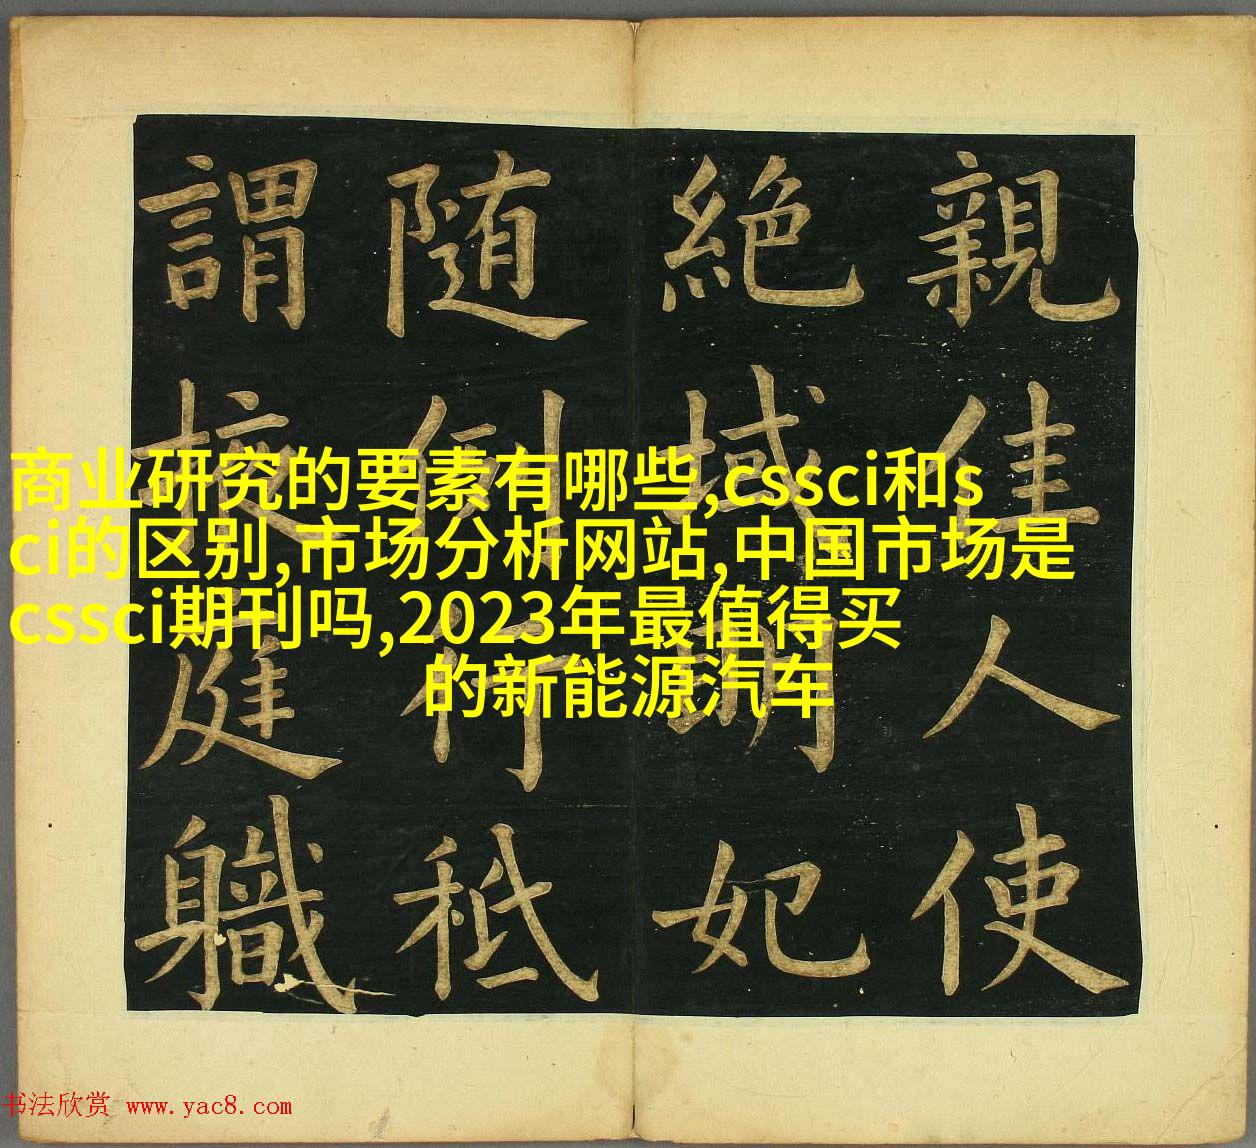 親佳人使
絶域明妃
随例行秪
謂掖庭職
商业研究的要素有哪些,cssci和s
ci的区别,市场分析网站,中国市场是
cssci期刊吗,2023年最值得买
的新能源汽车
书法欣赏 www.yac8.com